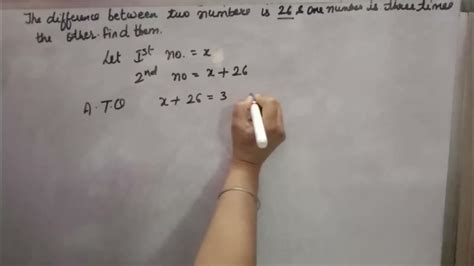 The difference between two numbers is 26 & one number is three times
the other. find them.
Let Ist no. = x
2nd no = x + 26
A.T.Q x + 26 = 3